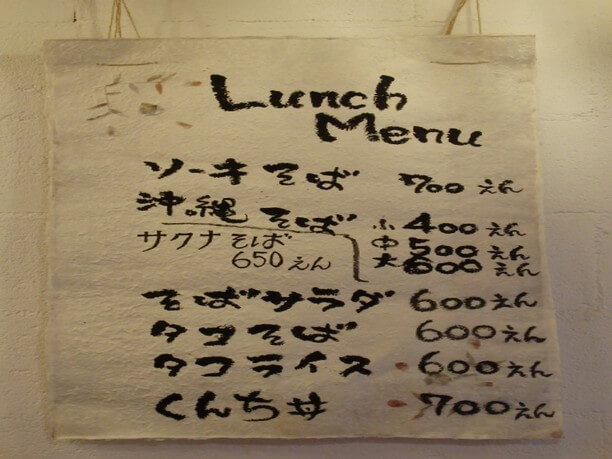 Lunch
Menu
ソーキそば 700えん
沖縄そば 小400えん
中500えん
大600えん
サクナそば
650えん
そばサラダ 600えん
タコそば 600えん
タコライス 600えん
くんち丼 700えん